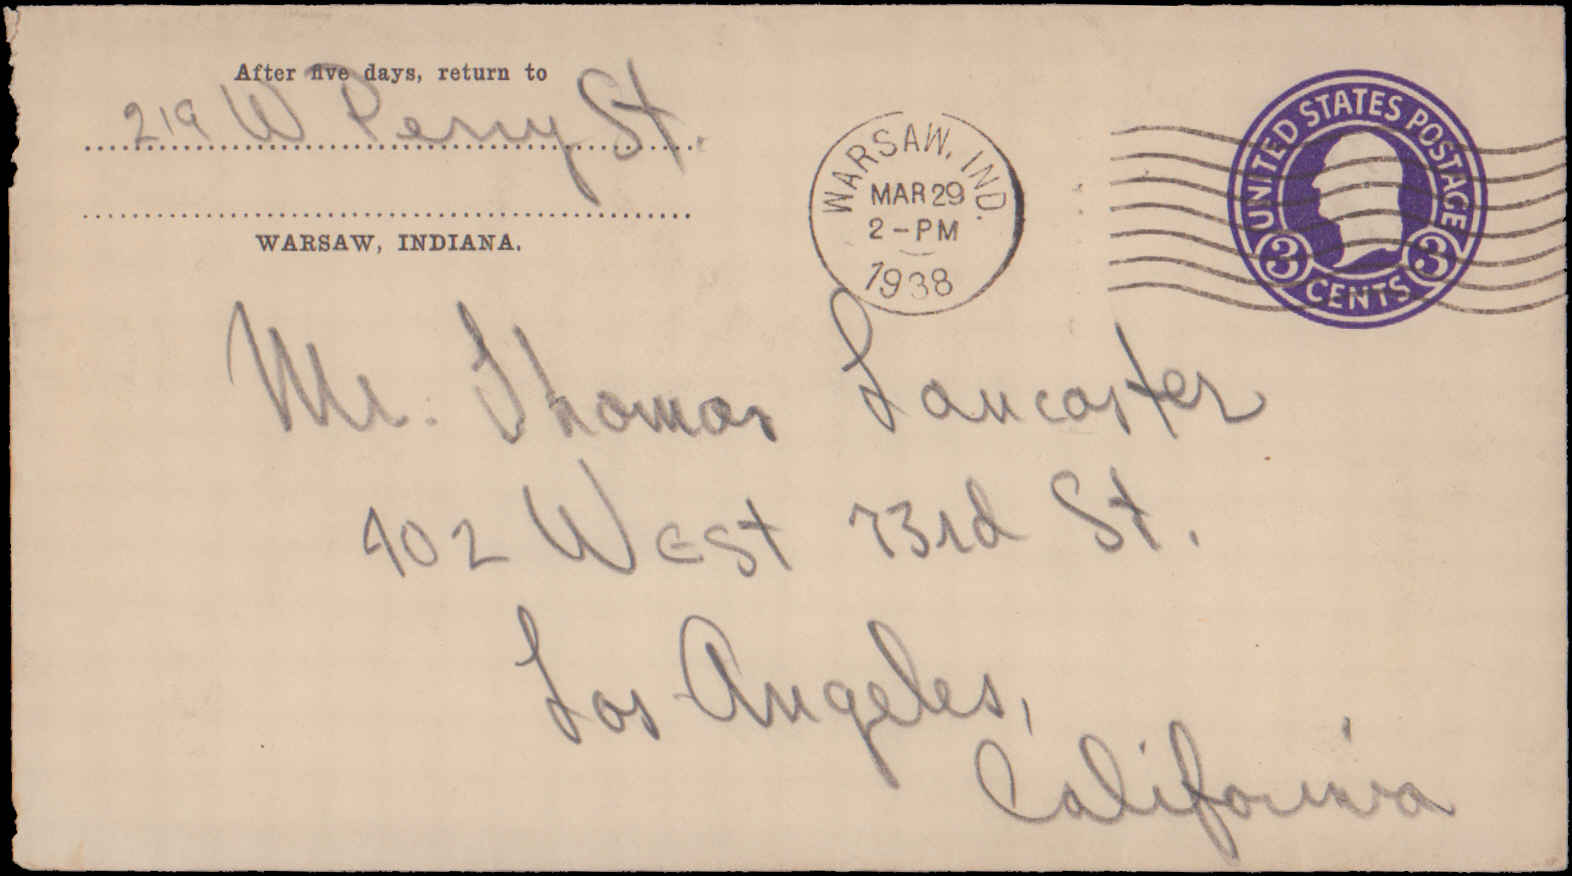 After five days, return to
219 W Perry St.
WARSAW, INDIANA.
WARSAW, IND.
MAR 29
2-PM
1938
UNITED STATES POSTAGE
3 CENTS 3
Mr. Thomas Lancaster
402 West 73rd St.
Los Angeles,
California